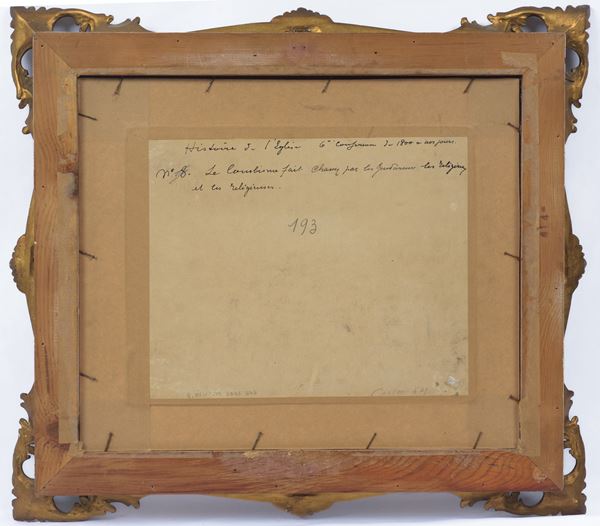 Histoire de l'Eglise 6e Conférence de 1800 à nos jours.
No Le Combisme fait chasser par les gendarmes les religieux
et les religieuses..
193